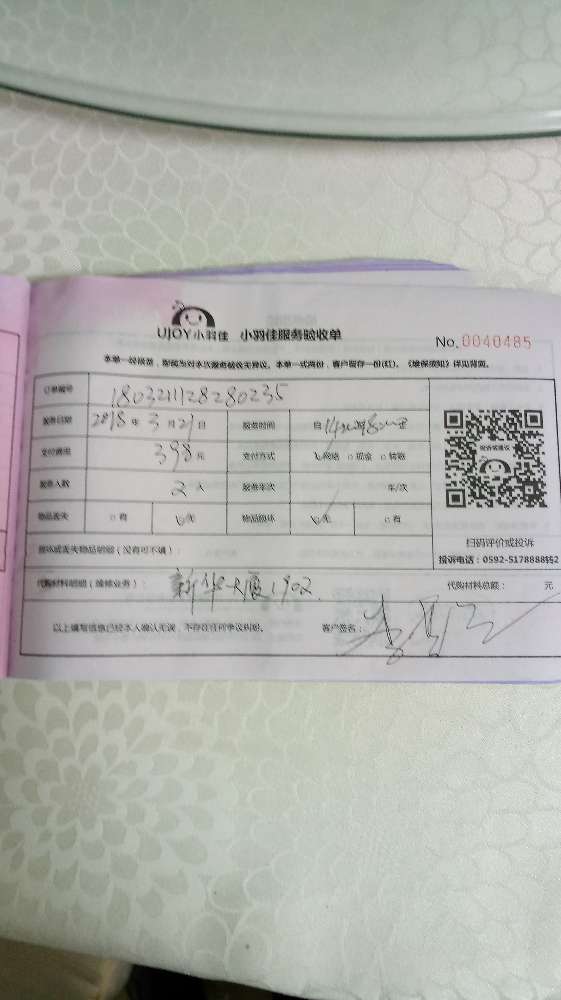 UJOY小羽佳 小羽佳服务验收单
No. 0040485
本单一经签署，即视为对本次服务验收无异议。本单一式两份，客户留存一份(红)。《维保须知》详见背面。
订单编号 180321128280235
服务日期 2018年3月21日 服务时间 自14
支付费用 398元 支付方式 网络 现金 转账
服务人数 2人 服务车次 车/次
物品丢失 有 无 物品损坏 无 有
投诉或建议
扫码评价或投诉
投诉电话：0592-5178888转2
损坏或丢失物品明细（没有可不填）：
代购材料明细（维修业务）： 新华大厦1902 代购材料总额： 元
以上填写信息已经本人确认无误，不存在任何争议纠纷。 客户签名：